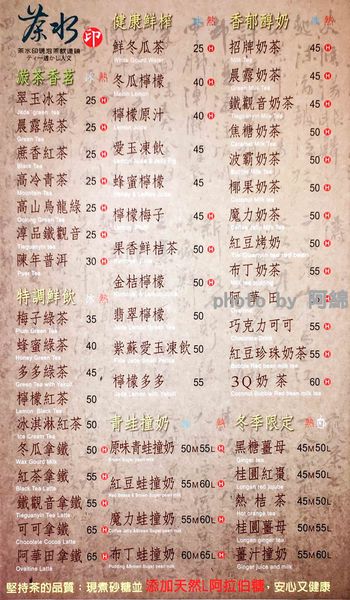 茶水 印
茶水印現泡茶飲連鎖
健康鮮榨
香郁醇奶
鮮冬瓜茶 25 H
招牌奶茶 45 H
White Gourd Water
Milk Tea
嚴茶香茗 冰 熱
冬瓜檸檬 40
晨露奶茶 45 H
翠玉冰茶 25 H
檸檬原汁 40 H
鐵觀音奶茶 45 H
Jade green tea
Lemon Juice
Tieguanyin Milk Tea
晨露綠茶 25 H
愛玉凍飲 45
焦糖奶茶 50 H
Green Tea
Caramel Milk Tea
蔗香紅茶 25 H
蜂蜜檸檬 45 H
波霸奶茶 50 H
Black Tea
Bubble Milk Tea
高冷青茶 25 H
檸檬梅子 45 H
椰果奶茶 50 H
Mountain Tea
Coconut Milk Tea
高山烏龍綠 25 H
果香鮮桔茶 50 H
魔力奶茶 50 H
淳品鐵觀音 25 H
金桔檸檬 50 H
紅豆烤奶 50 H
Tieguanyin tea
陳年普洱 30 H
翡翠檸檬 50
布丁奶茶 55 H
Puer Tea
Jade Lemon Green Tea
特調鮮飲 冰 熱
紫蘇愛玉凍飲 50
阿華田 50 H
梅子綠茶 35
檸檬多多 55
巧克力可可 55 H
Plum Green Tea
Chocolate Drink
蜂蜜綠茶 40 H
紅豆珍珠奶茶 55 H
Honey Green Tea
多多綠茶 45
3Q奶茶 60 H
Green Tea with Yakult
檸檬紅茶 50 H
青蛙撞奶
冬季限定 熱
Lemon Black Tea
冰淇淋紅茶 50
原味青蛙撞奶 50M 55L H
黑糖薑母 45M 50L
Ice Cream Tea
Brown Sugar pearl milk
Ginger tea
冬瓜拿鐵 50 H
紅豆蛙撞奶 55M 60L H
桂圓紅棗 45M 50L
紅茶拿鐵 55 H
熱桔茶 45M 50L
Black Tea Latte
Hot orange tea
鐵觀音拿鐵 55 H
魔力蛙撞奶 55M 60L H
桂圓薑母 50M 55L
Tieguanyin Tea Latte
Longan ginger tea
可可拿鐵 65 H
布丁蛙撞奶 60M 65L H
薑汁撞奶 55M 60L
Chocolate Cocoa Latte
Ginger juice and milk
阿華田拿鐵 65 H
Ovaltine Latte
photo by 阿綿
堅持茶的品質：現煮砂糖並 添加天然L阿拉伯糖，安心又健康